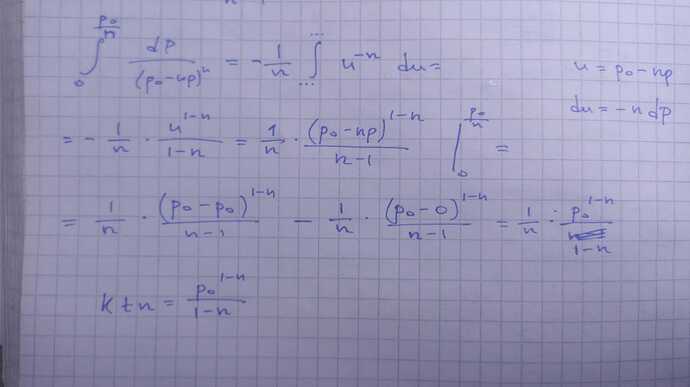 ∫₀^(p₀/n) dp/(p₀-np)ⁿ = -1/n ∫_…^… u⁻ⁿ du = u = p₀-np
du = -n dp
= -1/n · u¹⁻ⁿ/(1-n) = 1/n · (p₀-np)¹⁻ⁿ/(n-1) |₀^(p₀/n) =
= 1/n · (p₀-p₀)¹⁻ⁿ/(n-1) - 1/n · (p₀-0)¹⁻ⁿ/(n-1) = 1/n · p₀¹⁻ⁿ/(1-n)
k t n = p₀¹⁻ⁿ/(1-n)